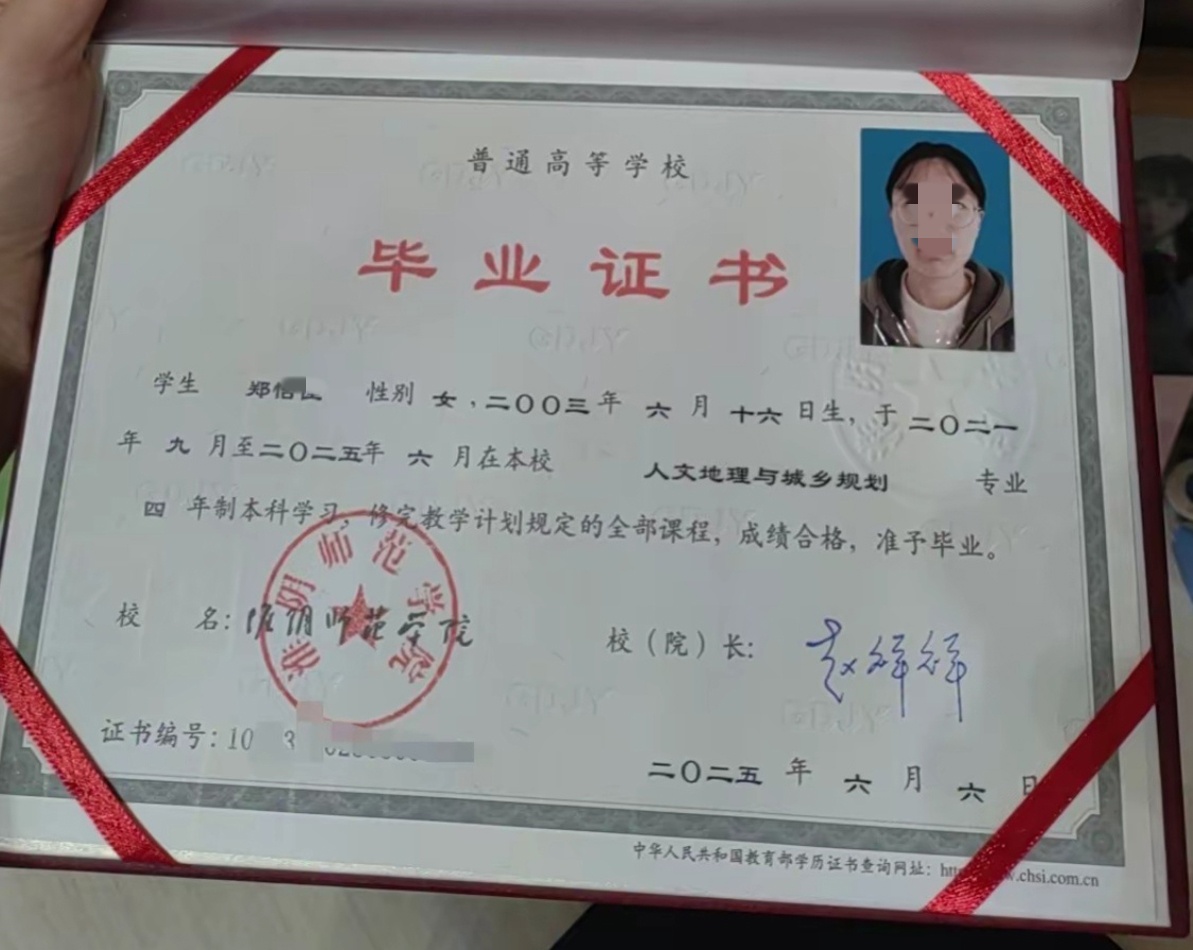 普通高等学校
毕业证书
学生 郑 性别 女，二〇〇三年 六 月 十六 日生，于 二〇二一
年 九 月至二〇二五年 六 月在本校 人文地理与城乡规划 专业
四 年制本科学习，修完教学计划规定的全部课程，成绩合格，准予毕业。
校 名：淮阴师范学院
淮阴师范学院
校（院）长：
证书编号：10 3
二〇二五 年 六 月 六 日
中华人民共和国教育部学历证书查询网址：www.chsi.com.cn